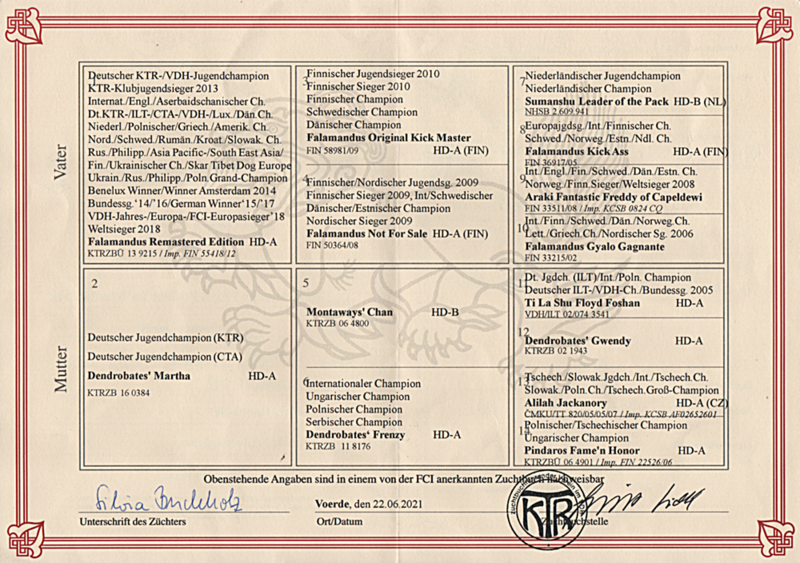 Vater
Deutscher KTR-/VDH-Jugendchampion
KTR-Klubjugendsieger 2013
Internat./Engl./Aserbaidschanischer Ch.
Dt.KTR-/ILT-/CTA-/VDH-/Lux./Dän.Ch.
Niederl./Polnischer/Griech./Amerik. Ch.
Nord./Schwed./Rumän./Kroat./Slowak. Ch.
Rus./Philipp./Asia Pacific-/South East Asia/
Fin./Ukrainischer Ch./Skar Tibet Dog Europe
Ukrain./Rus./Philipp./Poln.Grand-Champion
Benelux Winner/Winner Amsterdam 2014
Bundessg.'14/'16/German Winner'15/'17
VDH-Jahres-/Europa-/FCI-Europasieger'18
Weltsieger 2018
Falamandus Remastered Edition HD-A
KTRZBÜ 13 9215 / Imp. FIN 55418/12
3
Finnischer Jugendsieger 2010
Finnischer Sieger 2010
Finnischer Champion
Schwedischer Champion
Dänischer Champion
Falamandus Original Kick Master
FIN 58981/09 HD-A (FIN)
4
Finnischer/Nordischer Jugendsg. 2009
Finnischer Sieger 2009, Int/Schwedischer
Dänischer/Estnischer Champion
Nordischer Sieger 2009
Falamandus Not For Sale HD-A (FIN)
FIN 50364/08
7
Niederländischer Jugendchampion
Niederländischer Champion
Sumanshu Leader of the Pack HD-B (NL)
NHSB 2.609.941
8
Europajgdsg./Int./Finnischer Ch.
Schwed./Norweg./Estn./Ndl. Ch.
Falamandus KickAss HD-A (FIN)
FIN 36917/05
9
Int./Engl./Fin./Schwed./Dän./Estn. Ch.
Norweg./Finn.Sieger/Weltsieger 2008
Araki Fantastic Freddy of Capeldewi
FIN 33511/08 / Imp. KCSB 0824 CQ
10
Int./Finn./Schwed./Dän./Norweg.Ch.
Lett./Griech.Ch./Nordischer Sg. 2006
Falamandus Gyalo Gagnante
FIN 33215/02
Mutter
2
Deutscher Jugendchampion (KTR)
Deutscher Jugendchampion (CTA)
Dendrobates' Martha HD-A
KTRZB 16 0384
5
Montaways' Chan HD-B
KTRZB 06 4800
6
Internationaler Champion
Ungarischer Champion
Polnischer Champion
Serbischer Champion
Dendrobates' Frenzy HD-A
KTRZB 11 8176
Dt. Jgdch. (ILT)/Int./Poln. Champion
Deutscher ILT-/VDH-Ch./Bundessg. 2005
Ti La Shu Floyd Foshan HD-A
VDH/ILT 02/074 3541
12
Dendrobates' Gwendy HD-A
KTRZB 02 1943
13
Tschech./Slowak.Jgdch./Int./Tschech.Ch.
Slowak./Poln.Ch./Tschech.Groß-Champion
Alilah Jackanory HD-A (CZ)
ČMKU/TT 820/05/05/07 / Imp. KCSB AF02652601
Polnischer/Tschechischer Champion
Ungarischer Champion
Pindaros Fame'n Honor HD-A
KTRZBÜ 06 4901 / Imp. FIN 22526/06
Obenstehende Angaben sind in einem von der FCI anerkannten Zuchtbuch nachweisbar
Silvia Buchholz
Voerde, den 22.06.2021
KTR
Unterschrift des Züchters
Ort/Datum
Zuchtbuchstelle